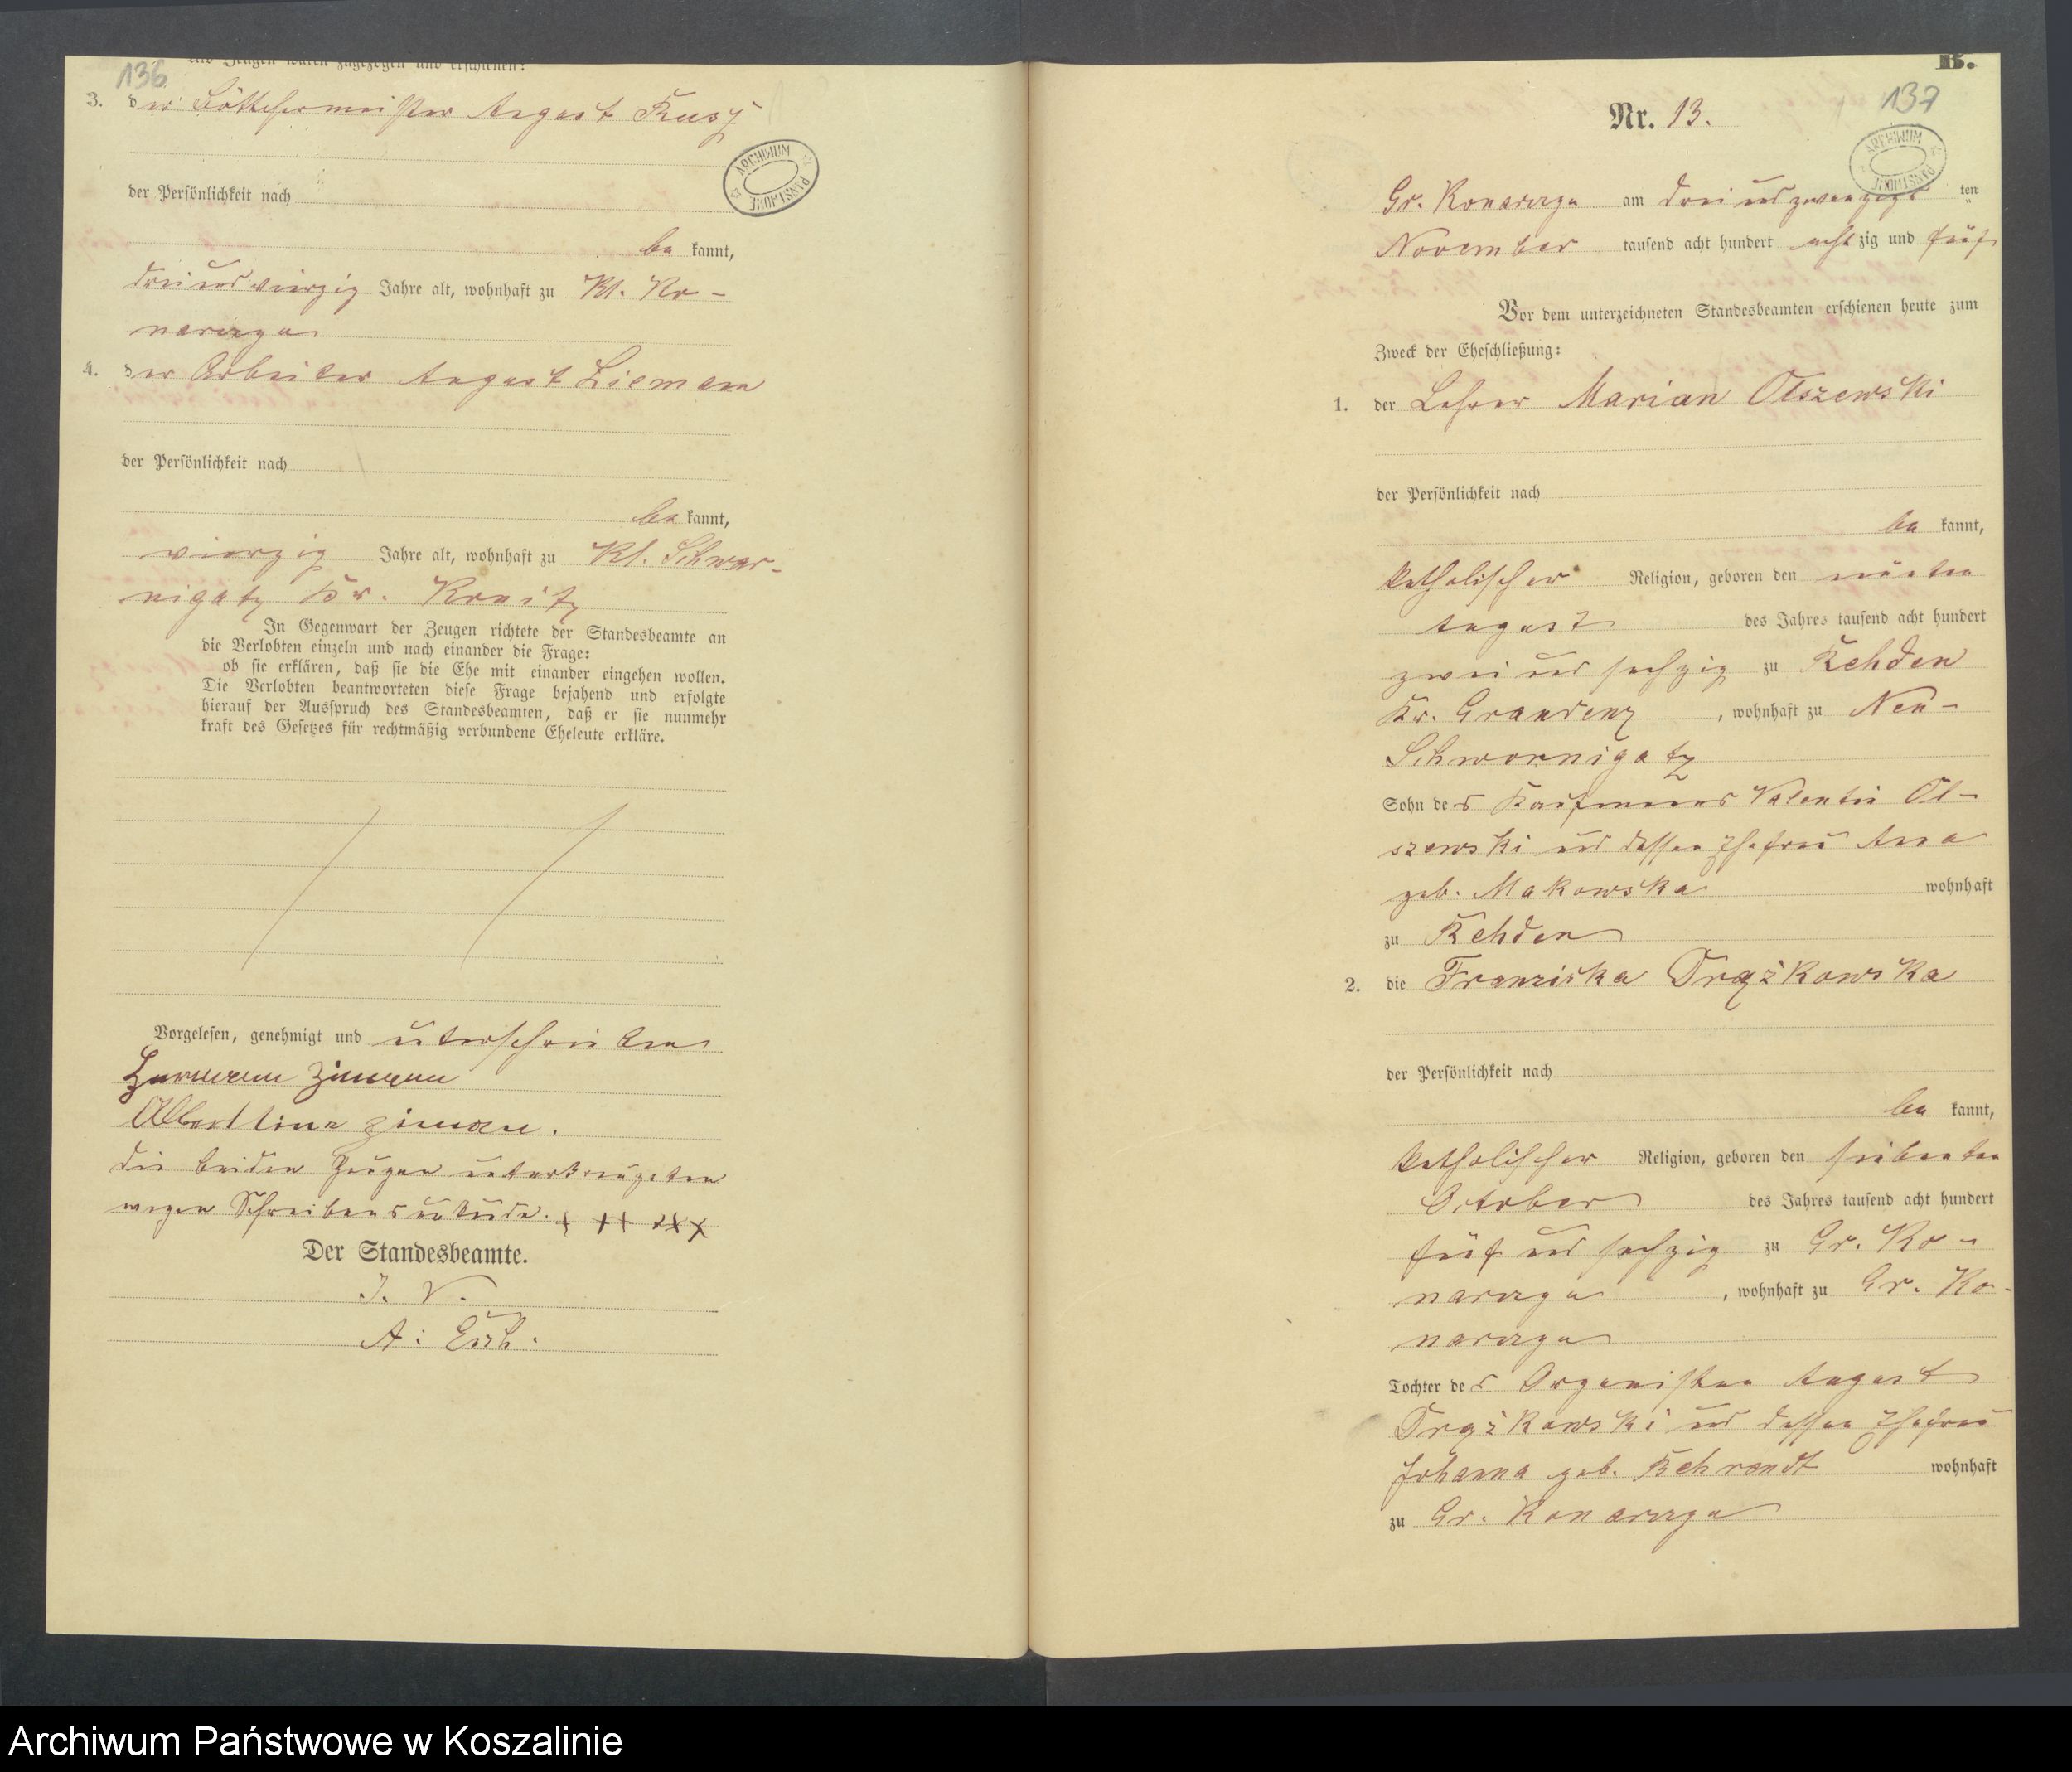 136
Als Zeugen waren zugezogen und erschienen:
3. der Böttchermeister August Kusz
ARCHIWUM PAŃSTWOWE
der Persönlichkeit nach
be kannt,
drei und vierzig Jahre alt, wohnhaft zu Kl. Ko-
narczyn
4. der Arbeiter August Ziemann
der Persönlichkeit nach
be kannt,
vierzig Jahre alt, wohnhaft zu Kl. Schwor-
nigatz Kr. Konitz
In Gegenwart der Zeugen richtete der Standesbeamte an
die Verlobten einzeln und nach einander die Frage:
ob sie erklären, daß sie die Ehe mit einander eingehen wollen.
Die Verlobten beantworteten diese Frage bejahend und erfolgte
hierauf der Ausspruch des Standesbeamten, daß er sie nunmehr
kraft des Gesetzes für rechtmäßig verbundene Eheleute erkläre.
Vorgelesen, genehmigt und unterschrieben
Hermann Zimann
Albertina Zimann.
die beiden Zeugen unterkreuzten
wegen Schreibensunkunde. + ++ +++
Der Standesbeamte.
I. V.
A.
B.
137
Nr. 13.
ARCHIWUM PAŃSTWOWE
Gr. Konarczyn am drei und zwanzigs ten
November tausend acht hundert acht zig und fünf
Vor dem unterzeichneten Standesbeamten erschienen heute zum
Zweck der Eheschließung:
1. der Lehrer Marian Olszewski
der Persönlichkeit nach
be kannt,
katholischer Religion, geboren den neunten
August des Jahres tausend acht hundert
zwei und sechzig zu Rehden
Kr. Graudenz, wohnhaft zu Neu-
Schwornigatz
Sohn des Kaufmanns Valentin Ol-
szewski und dessen Ehefrau Anna
geb. Makowska wohnhaft
zu Rehden
2. die Franziska Drążkowska
der Persönlichkeit nach
be kannt,
katholischer Religion, geboren den siebenten
October des Jahres tausend acht hundert
fünf und sechzig zu Gr. Ko-
narczyn, wohnhaft zu Gr. Ko-
narczyn
Tochter des Organisten August
Drążkowski und dessen Ehefrau
Johanna geb. Behrendt wohnhaft
zu Gr. Konarczyn
Archiwum Państwowe w Koszalinie